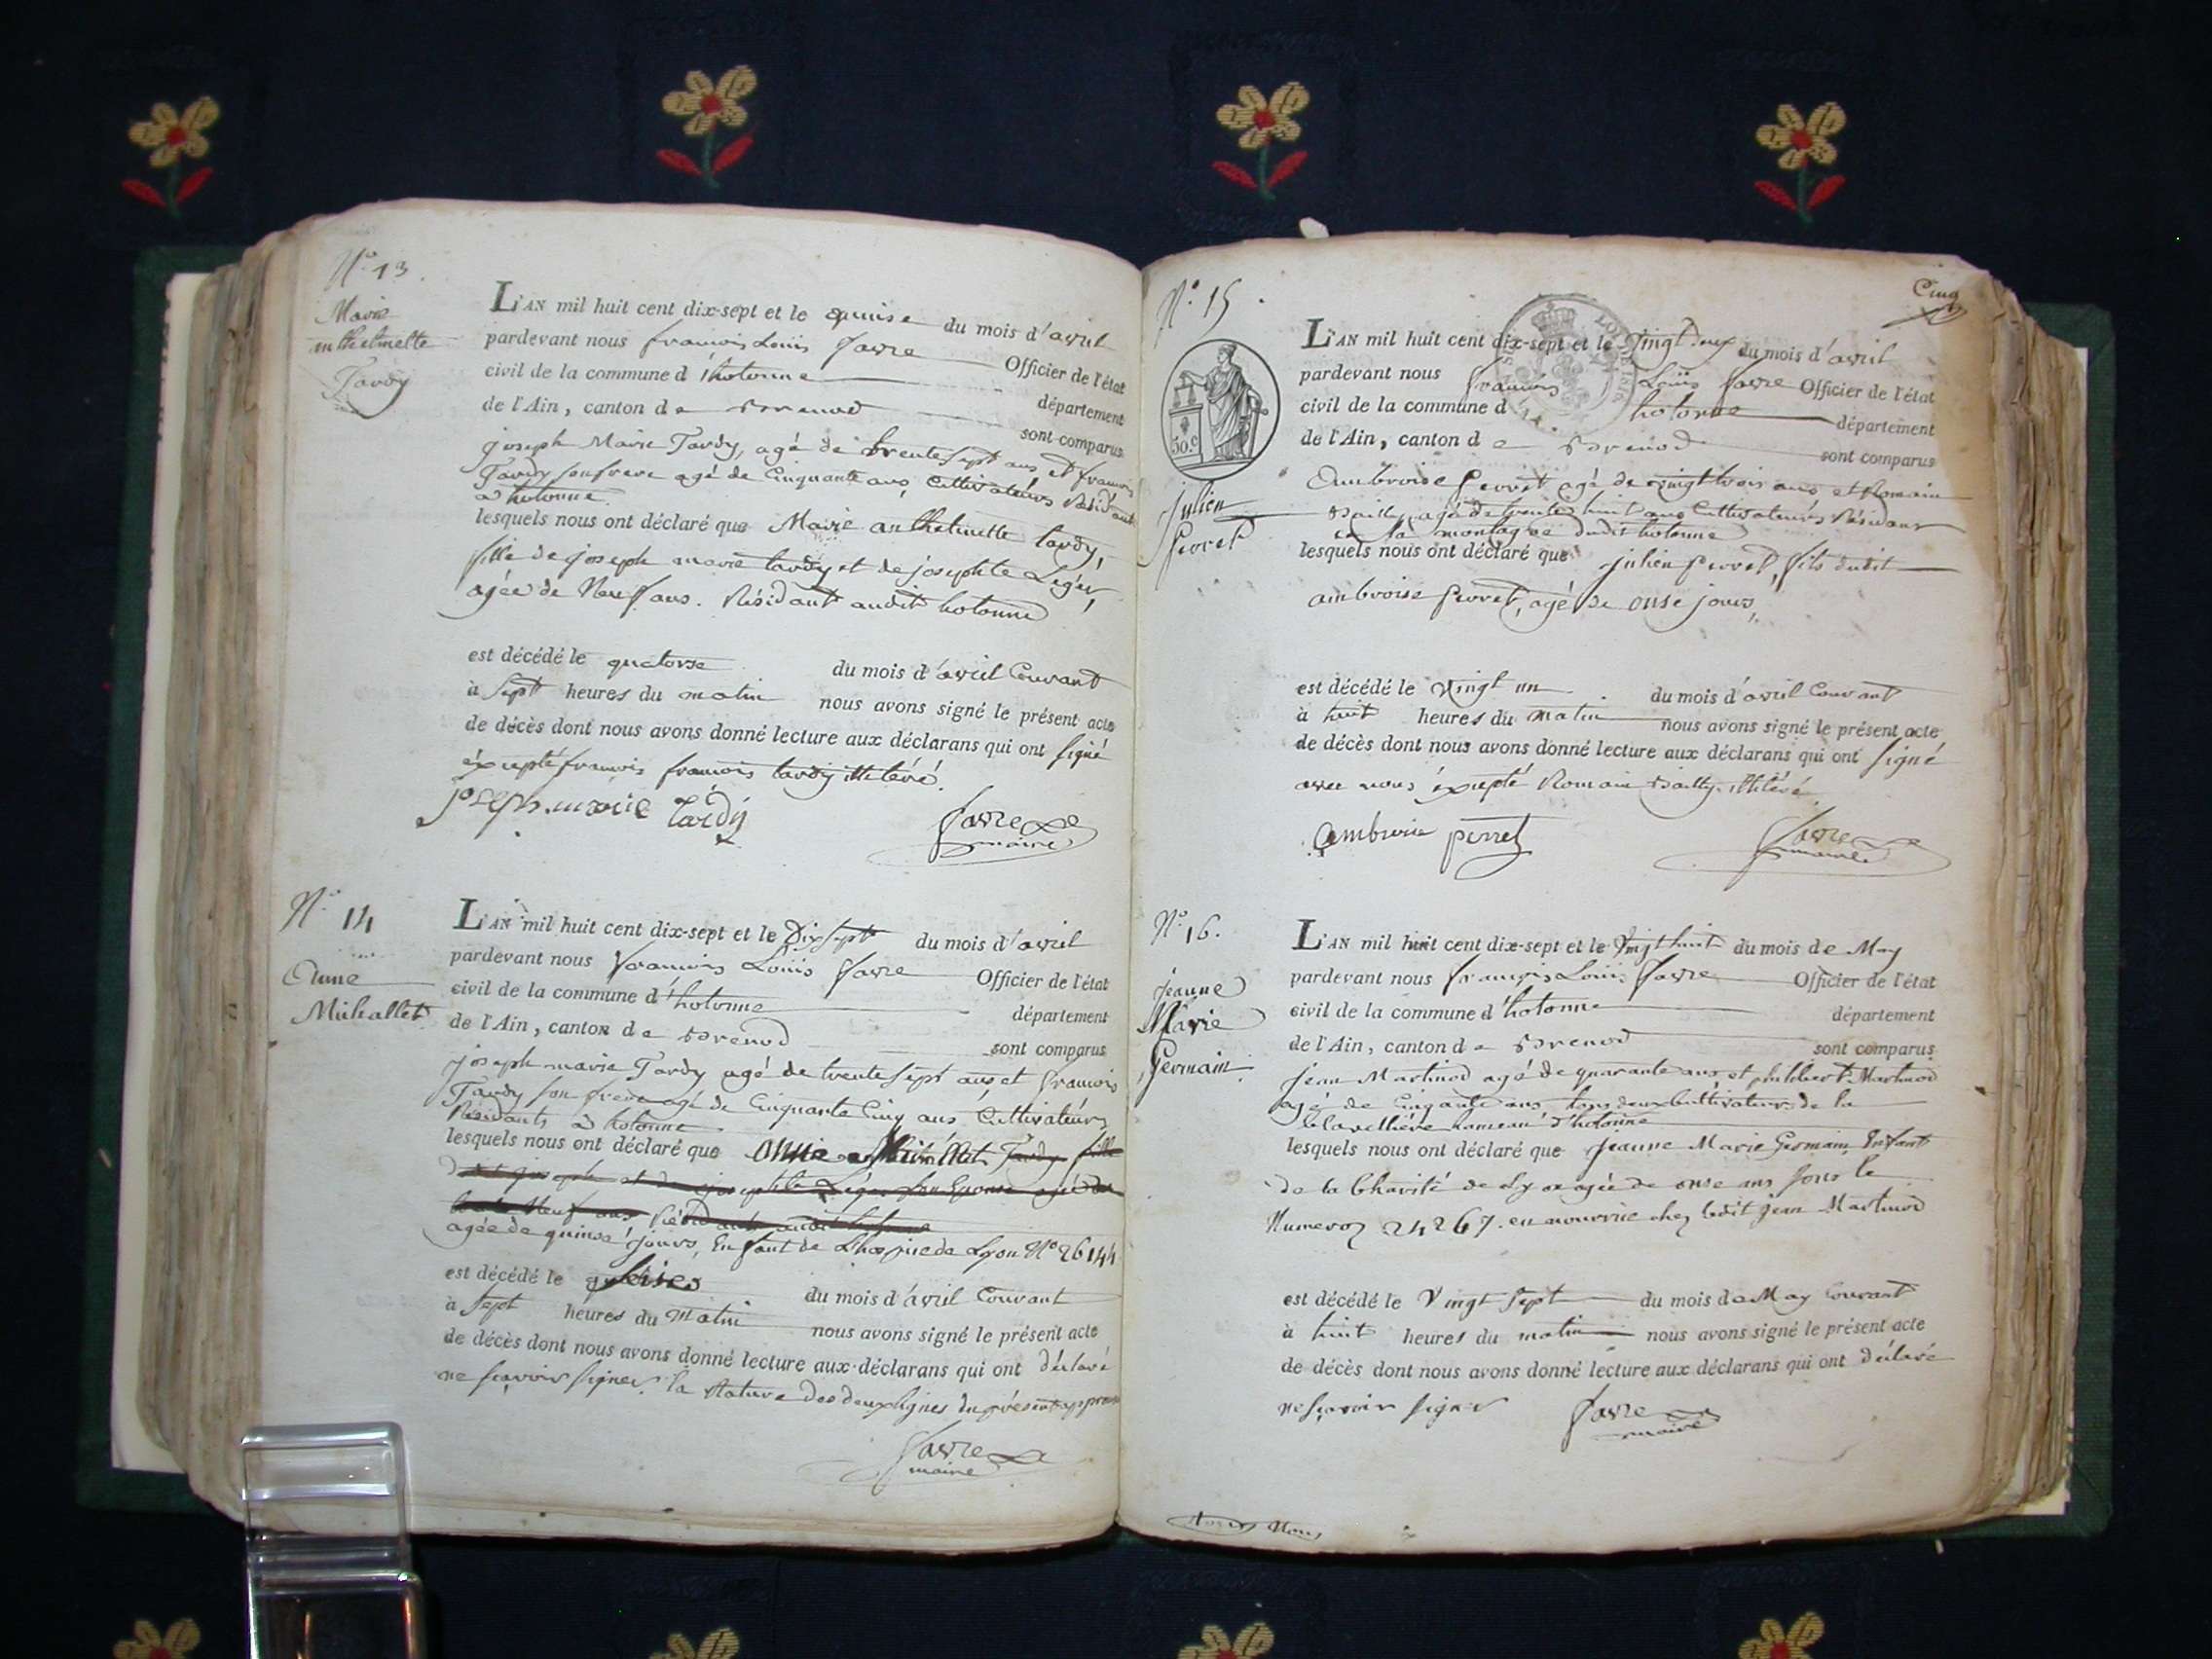 N.° 13.
Marie
anthelmette
Tardy
L'AN mil huit cent dix-sept et le quinse du mois d'avril
pardevant nous francois Louis favre Officier de l'état
civil de la commune d'hotonne département
de l'Ain, canton de Brenod sont comparus
joseph Marie Tardy, agé de trente sept ans et francois
Tardy son frere agé de Cinquante ans, Cultivateurs Résidant
à hotonne
lesquels nous ont déclaré que Marie anthelmette tardy,
fille de joseph marie tardy et de josephte Leger,
agée de Neuf ans. Résidant audit hotonne
est décédé le quatorse du mois d'avril Courant
à Sept heures du matin nous avons signé le présent acte
de décès dont nous avons donné lecture aux déclarans qui ont signé
éxcepté francois francois tardy illitéré.
joseph marie tardy
favre
maire
N.° 14
Anne
Michallet
L'AN mil huit cent dix-sept et le Dix sept du mois d'avril
pardevant nous francois Louis favre Officier de l'état
civil de la commune d'hotonne département
de l'Ain, canton de Brenod sont comparus
joseph marie Tardy agé de trente sept ans et francois
Tardy son frere agé de Cinquante Cinq ans, Cultivateurs
Résidants à hotonne
lesquels nous ont déclaré que Tardy fille
joseph et de josephte Léger son Epouse agée de
Neuf ans Résidante audit
agée de quinse jours, Enfant de L'hospice de Lyon N° 26144
est décédé le seise du mois d'avril Courant
à Sept heures du Matin nous avons signé le présent acte
de décès dont nous avons donné lecture aux déclarans qui ont déclaré
ne scavoir signer. la Rature des deux lignes du présent
favre
maire
Cinq
N.° 15.
50.c
julien
Perret
L'AN mil huit cent dix-sept et le Vingt deux du mois d'avril
pardevant nous francois Louis favre Officier de l'état
civil de la commune d' hotonne département
de l'Ain, canton de Brenod sont comparus
Ambroise Perret agé de vingt trois ans, et Romain
Bailly, agé de trente huit ans Cultivateurs Résidant
en la montagne dudit hotonne
lesquels nous ont déclaré que julien Perret, fils dudit
ambroise Perret, agé de onse jours,
est décédé le Vingt un du mois d'avril Courant
à huit heures du matin nous avons signé le présent acte
de décès dont nous avons donné lecture aux déclarans qui ont signé
avec nous éxcepté Romain Bailly. illitéré
Ambroise perret
favre
maire
N.° 16.
Jeanne
Marie
Germain
L'AN mil huit cent dix-sept et le Vingt huit du mois de May
pardevant nous francois Louis favre Officier de l'état
civil de la commune d'hotonne département
de l'Ain, canton de Brenod sont comparus
Jean Martinod agé de quarante ans et philibert Martinod
agé de Cinqante ans tous deux Cultivateurs de la
hameau d'hotonne
lesquels nous ont déclaré que Jeanne Marie Germain, Enfant
de la Charité de Lyon agée de onse ans sous le
Numero 24267. en nourrice chez ledit Jean Martinod
est décédé le Vingt Sept du mois de May Courant
à huit heures du matin nous avons signé le présent acte
de décès dont nous avons donné lecture aux déclarans qui ont déclaré
ne scavoir signer
favre
maire